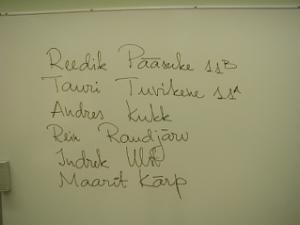 Reedik Pääsuke 11B
Tauri Tuvikene 11A
Andres Kukk
Rein Raudjärv
Indrek
Maarit Kärp